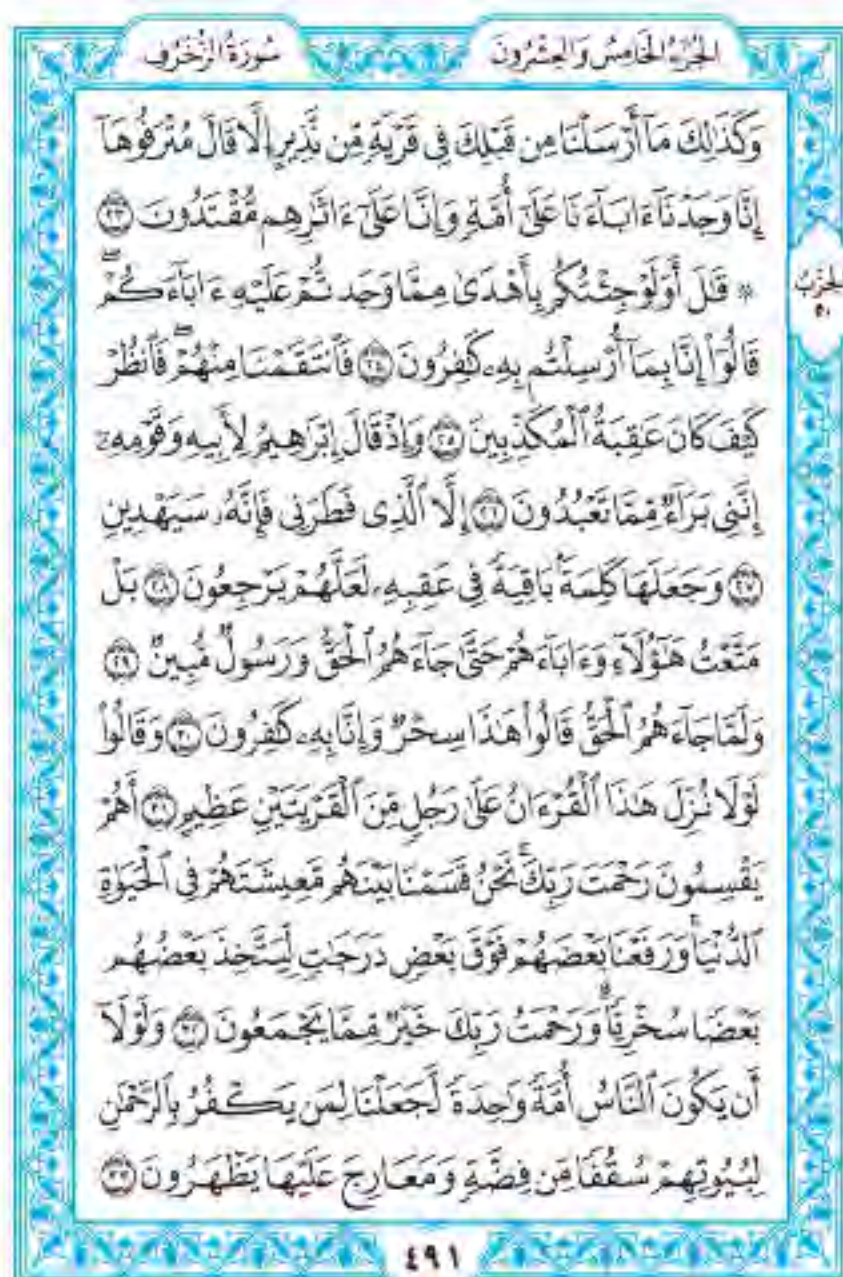 الجُزْءُ الخَامِسُ وَالعِشْرُونَ
سُورَةُ الزُّخْرُفِ
وَكَذَٰلِكَ مَآ أَرْسَلْنَا مِن قَبْلِكَ فِى قَرْيَةٍ مِّن نَّذِيرٍ إِلَّا قَالَ مُتْرَفُوهَآ
إِنَّا وَجَدْنَآ ءَابَآءَنَا عَلَىٰٓ أُمَّةٍ وَإِنَّا عَلَىٰٓ ءَاثَٰرِهِم مُّقْتَدُونَ ٢٣
۞ قَٰلَ أَوَلَوْ جِئْتُكُم بِأَهْدَىٰ مِمَّا وَجَدتُّمْ عَلَيْهِ ءَابَآءَكُمْۖ
الحِزْبُ
٥٠
قَالُوٓا۟ إِنَّا بِمَآ أُرْسِلْتُم بِهِۦ كَٰفِرُونَ ٢٤ فَٱنتَقَمْنَا مِنْهُمْۖ فَٱنظُرْ
كَيْفَ كَانَ عَٰقِبَةُ ٱلْمُكَذِّبِينَ ٢٥ وَإِذْ قَالَ إِبْرَٰهِيمُ لِأَبِيهِ وَقَوْمِهِۦٓ
إِنَّنِى بَرَآءٌ مِّمَّا تَعْبُدُونَ ٢٦ إِلَّا ٱلَّذِى فَطَرَنِى فَإِنَّهُۥ سَيَهْدِينِ
٢٧ وَجَعَلَهَا كَلِمَةًۢ بَاقِيَةً فِى عَقِبِهِۦ لَعَلَّهُمْ يَرْجِعُونَ ٢٨ بَلْ
مَتَّعْتُ هَٰٓؤُلَآءِ وَءَابَآءَهُمْ حَتَّىٰ جَآءَهُمُ ٱلْحَقُّ وَرَسُولٌ مُّبِينٌ ٢٩
وَلَمَّا جَآءَهُمُ ٱلْحَقُّ قَالُوا۟ هَٰذَا سِحْرٌ وَإِنَّا بِهِۦ كَٰفِرُونَ ٣٠ وَقَالُوا۟
لَوْلَا نُزِّلَ هَٰذَا ٱلْقُرْءَانُ عَلَىٰ رَجُلٍ مِّنَ ٱلْقَرْيَتَيْنِ عَظِيمٍ ٣١ أَهُمْ
يَقْسِمُونَ رَحْمَتَ رَبِّكَۚ نَحْنُ قَسَمْنَا بَيْنَهُم مَّعِيشَتَهُمْ فِى ٱلْحَيَوٰةِ
ٱلدُّنْيَاۚ وَرَفَعْنَا بَعْضَهُمْ فَوْقَ بَعْضٍ دَرَجَٰتٍ لِّيَتَّخِذَ بَعْضُهُم
بَعْضًا سُخْرِيًّاۗ وَرَحْمَتُ رَبِّكَ خَيْرٌ مِّمَّا يَجْمَعُونَ ٣٢ وَلَوْلَآ
أَن يَكُونَ ٱلنَّاسُ أُمَّةً وَٰحِدَةً لَّجَعَلْنَا لِمَن يَكْفُرُ بِٱلرَّحْمَٰنِ
لِبُيُوتِهِمْ سُقُفًا مِّن فِضَّةٍ وَمَعَارِجَ عَلَيْهَا يَظْهَرُونَ ٣٣
٤٩١